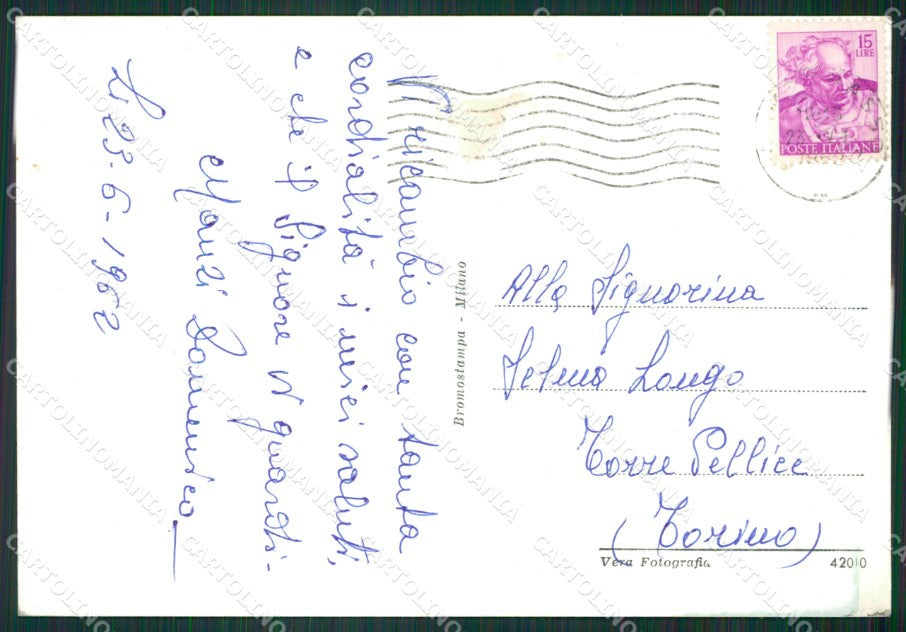 Vi ricambio con tanta
cordialità i miei saluti,
e che il Signore vi guardi-
Manzi Domenico
Lì 23-6-1962
Bromostampa - Milano
15
LIRE
POSTE ITALIANE
Alla Signorina
Selma Longo
Torre Pellice
(Torino)
Vera Fotografia
42010
CARTOLINOMANIA